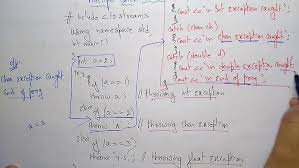 # include <iostream>
using namespace std
int main()
int a=2;
try
if (a==1)
throw 2; // Throwing int exception
else
if (a==2)
throw 'A'; // Throwing char exception
else
if (a==3)
// Throwing float exception
{ cout<<"in int exception caught";
catch (char ch)
{ cout<<"in char exception caught";
catch (double d)
{ cout<<"in double exception caught
cout<<"in end of prog";
o/p
char exception caught
end of prog